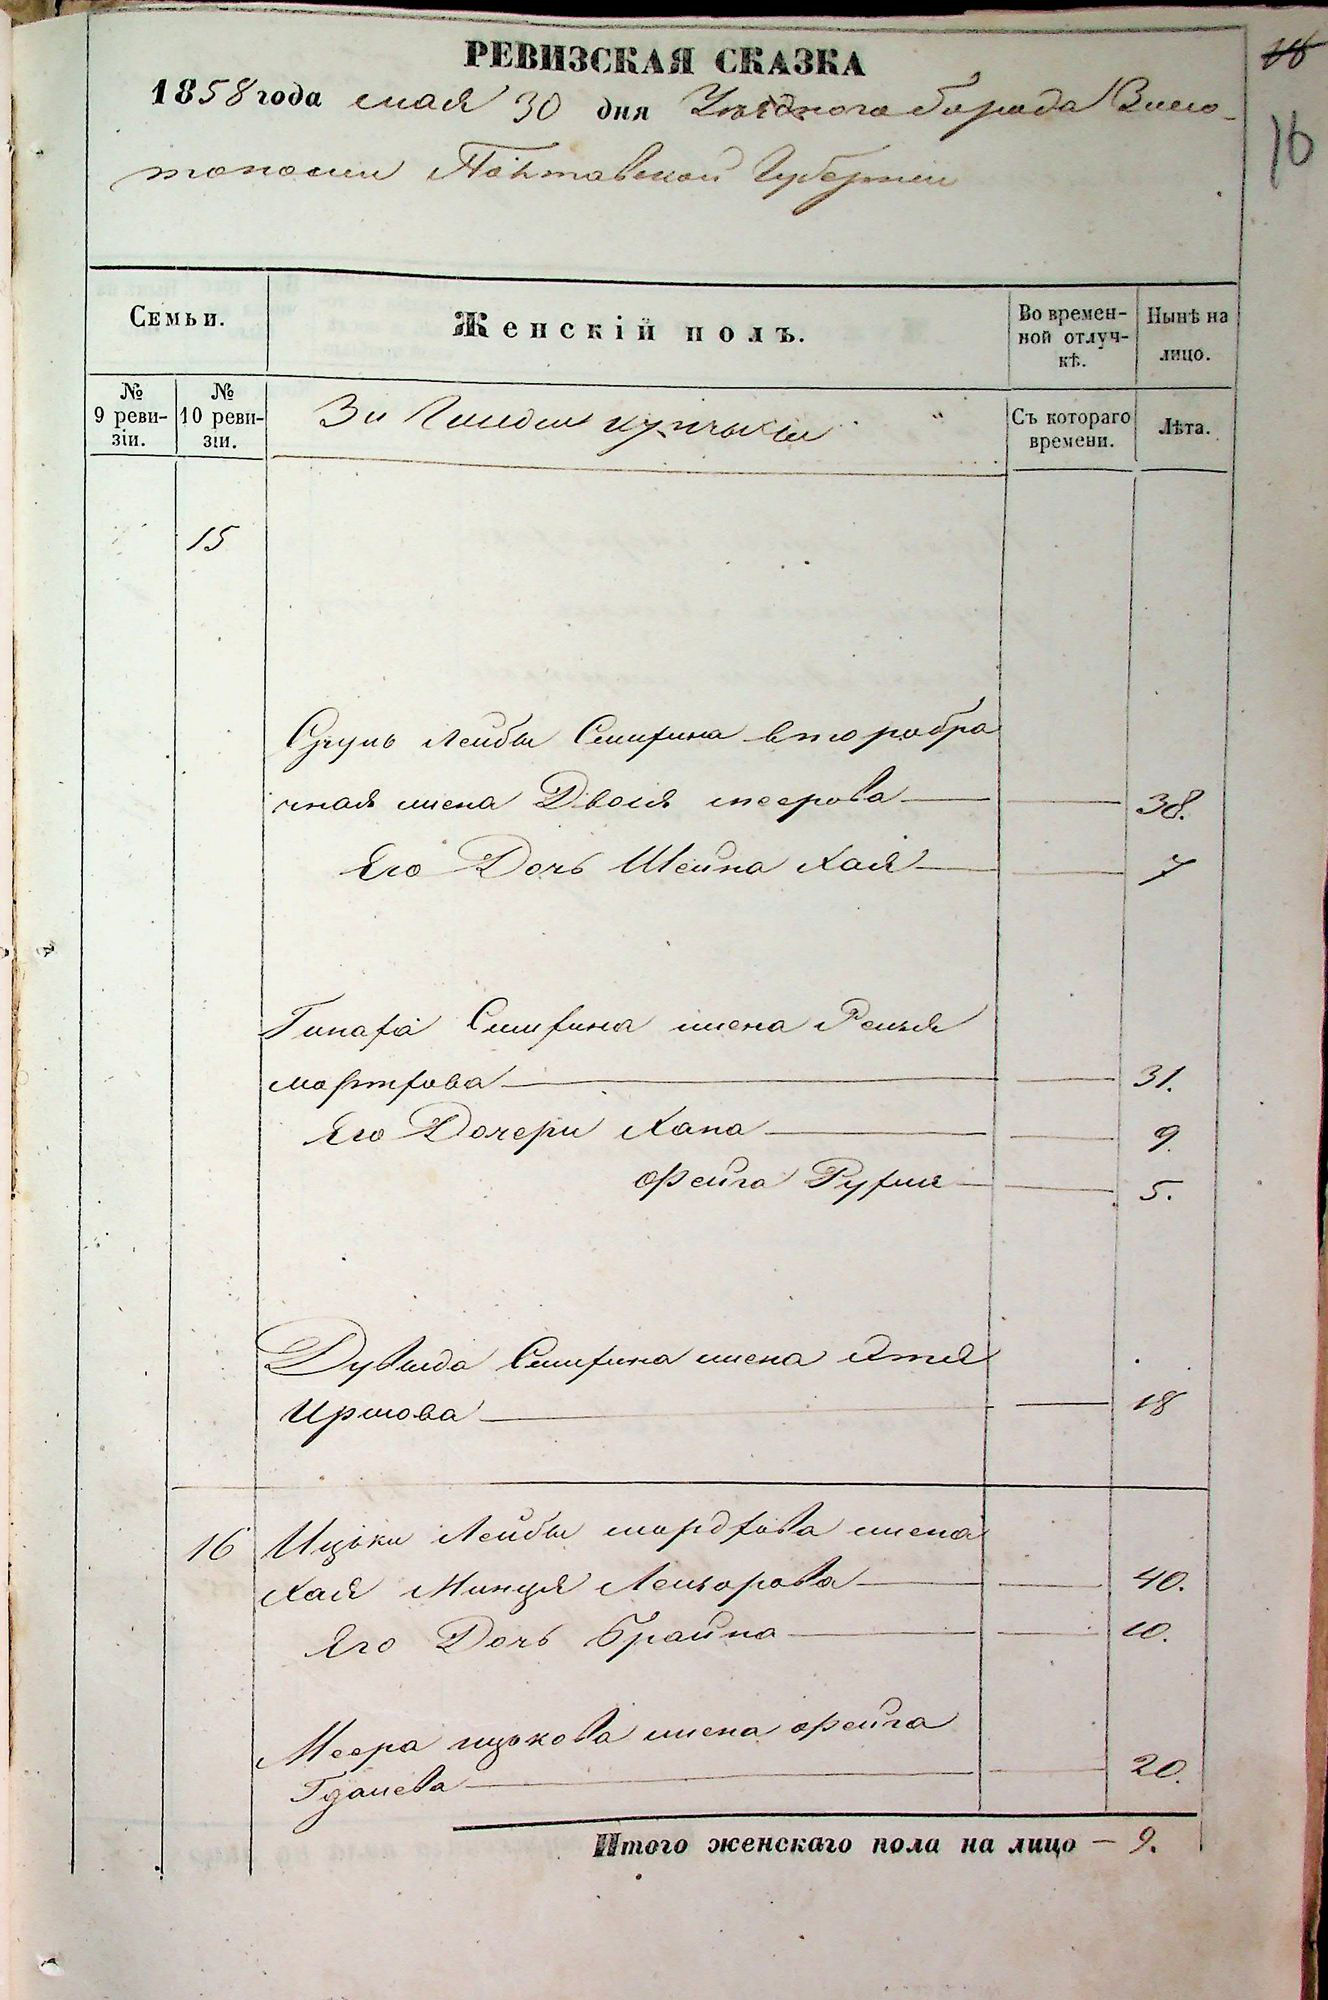 РЕВИЗСКАЯ СКАЗКА
16
16
1858 года мая 30 дня Уѣзднаго города Золо-
тоноши Полтавской Губерніи
Семьи.
Женскій полъ.
Во времен-
ной отлуч-
кѣ.
Нынѣ на
лицо.
№
9 реви-
зіи.
№
10 реви-
зіи.
3й Гильдіи купчихи
Съ котораго
времени.
Лѣта.
15
Сруль Лейбы второbра
чная жена Двося меерова — — 38.
Его Дочь Шейна Хая — — 7
жена Рейзя
— — 31.
Его Дочери Хана — — 9.
Фейга — — 5.
Дувыда жена
Иршова — — 18
16 Ицьки Лейбы мордкова жена
Хая Минця Лейзорова — — 40.
Его Дочь Брайна — — 10.
Меера ицькова жена Фейга
— — 20.
Итого женскаго пола на лицо — 9.